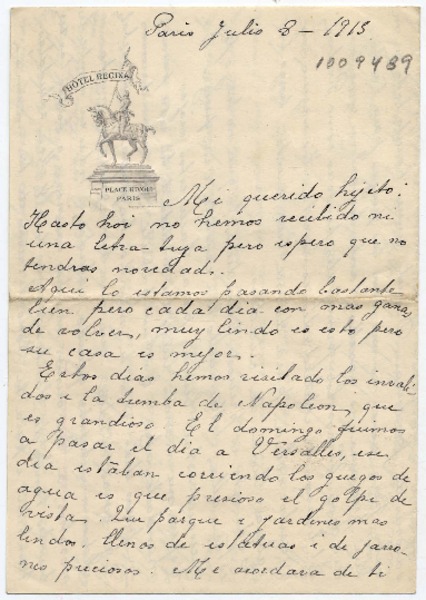 Paris Julio 8 - 1913.
1009489
HOTEL REGINA
PLACE RIVOLI
PARIS
Mi querido hijito:
Hasta hoi no hemos recibido ni
una letra tuya pero espero que no
tendras novedad.
Aqui lo estamos pasando bastante
bien pero cada dia con mas ganas
de volver, muy lindo es esto pero
su casa es mejor.
Estos dias hemos visitado los invali-
dos i la tumba de Napoleon, que
es grandioso. El domingo fuimos
a pasar el dia a Versalles, ese
dia estaban corriendo los guegos de
agua es que presioso el golpe de
vista. Que parque i jardines mas
lindos. llenos de estatuas i de jarro-
nes preciosos. Me acordava de ti